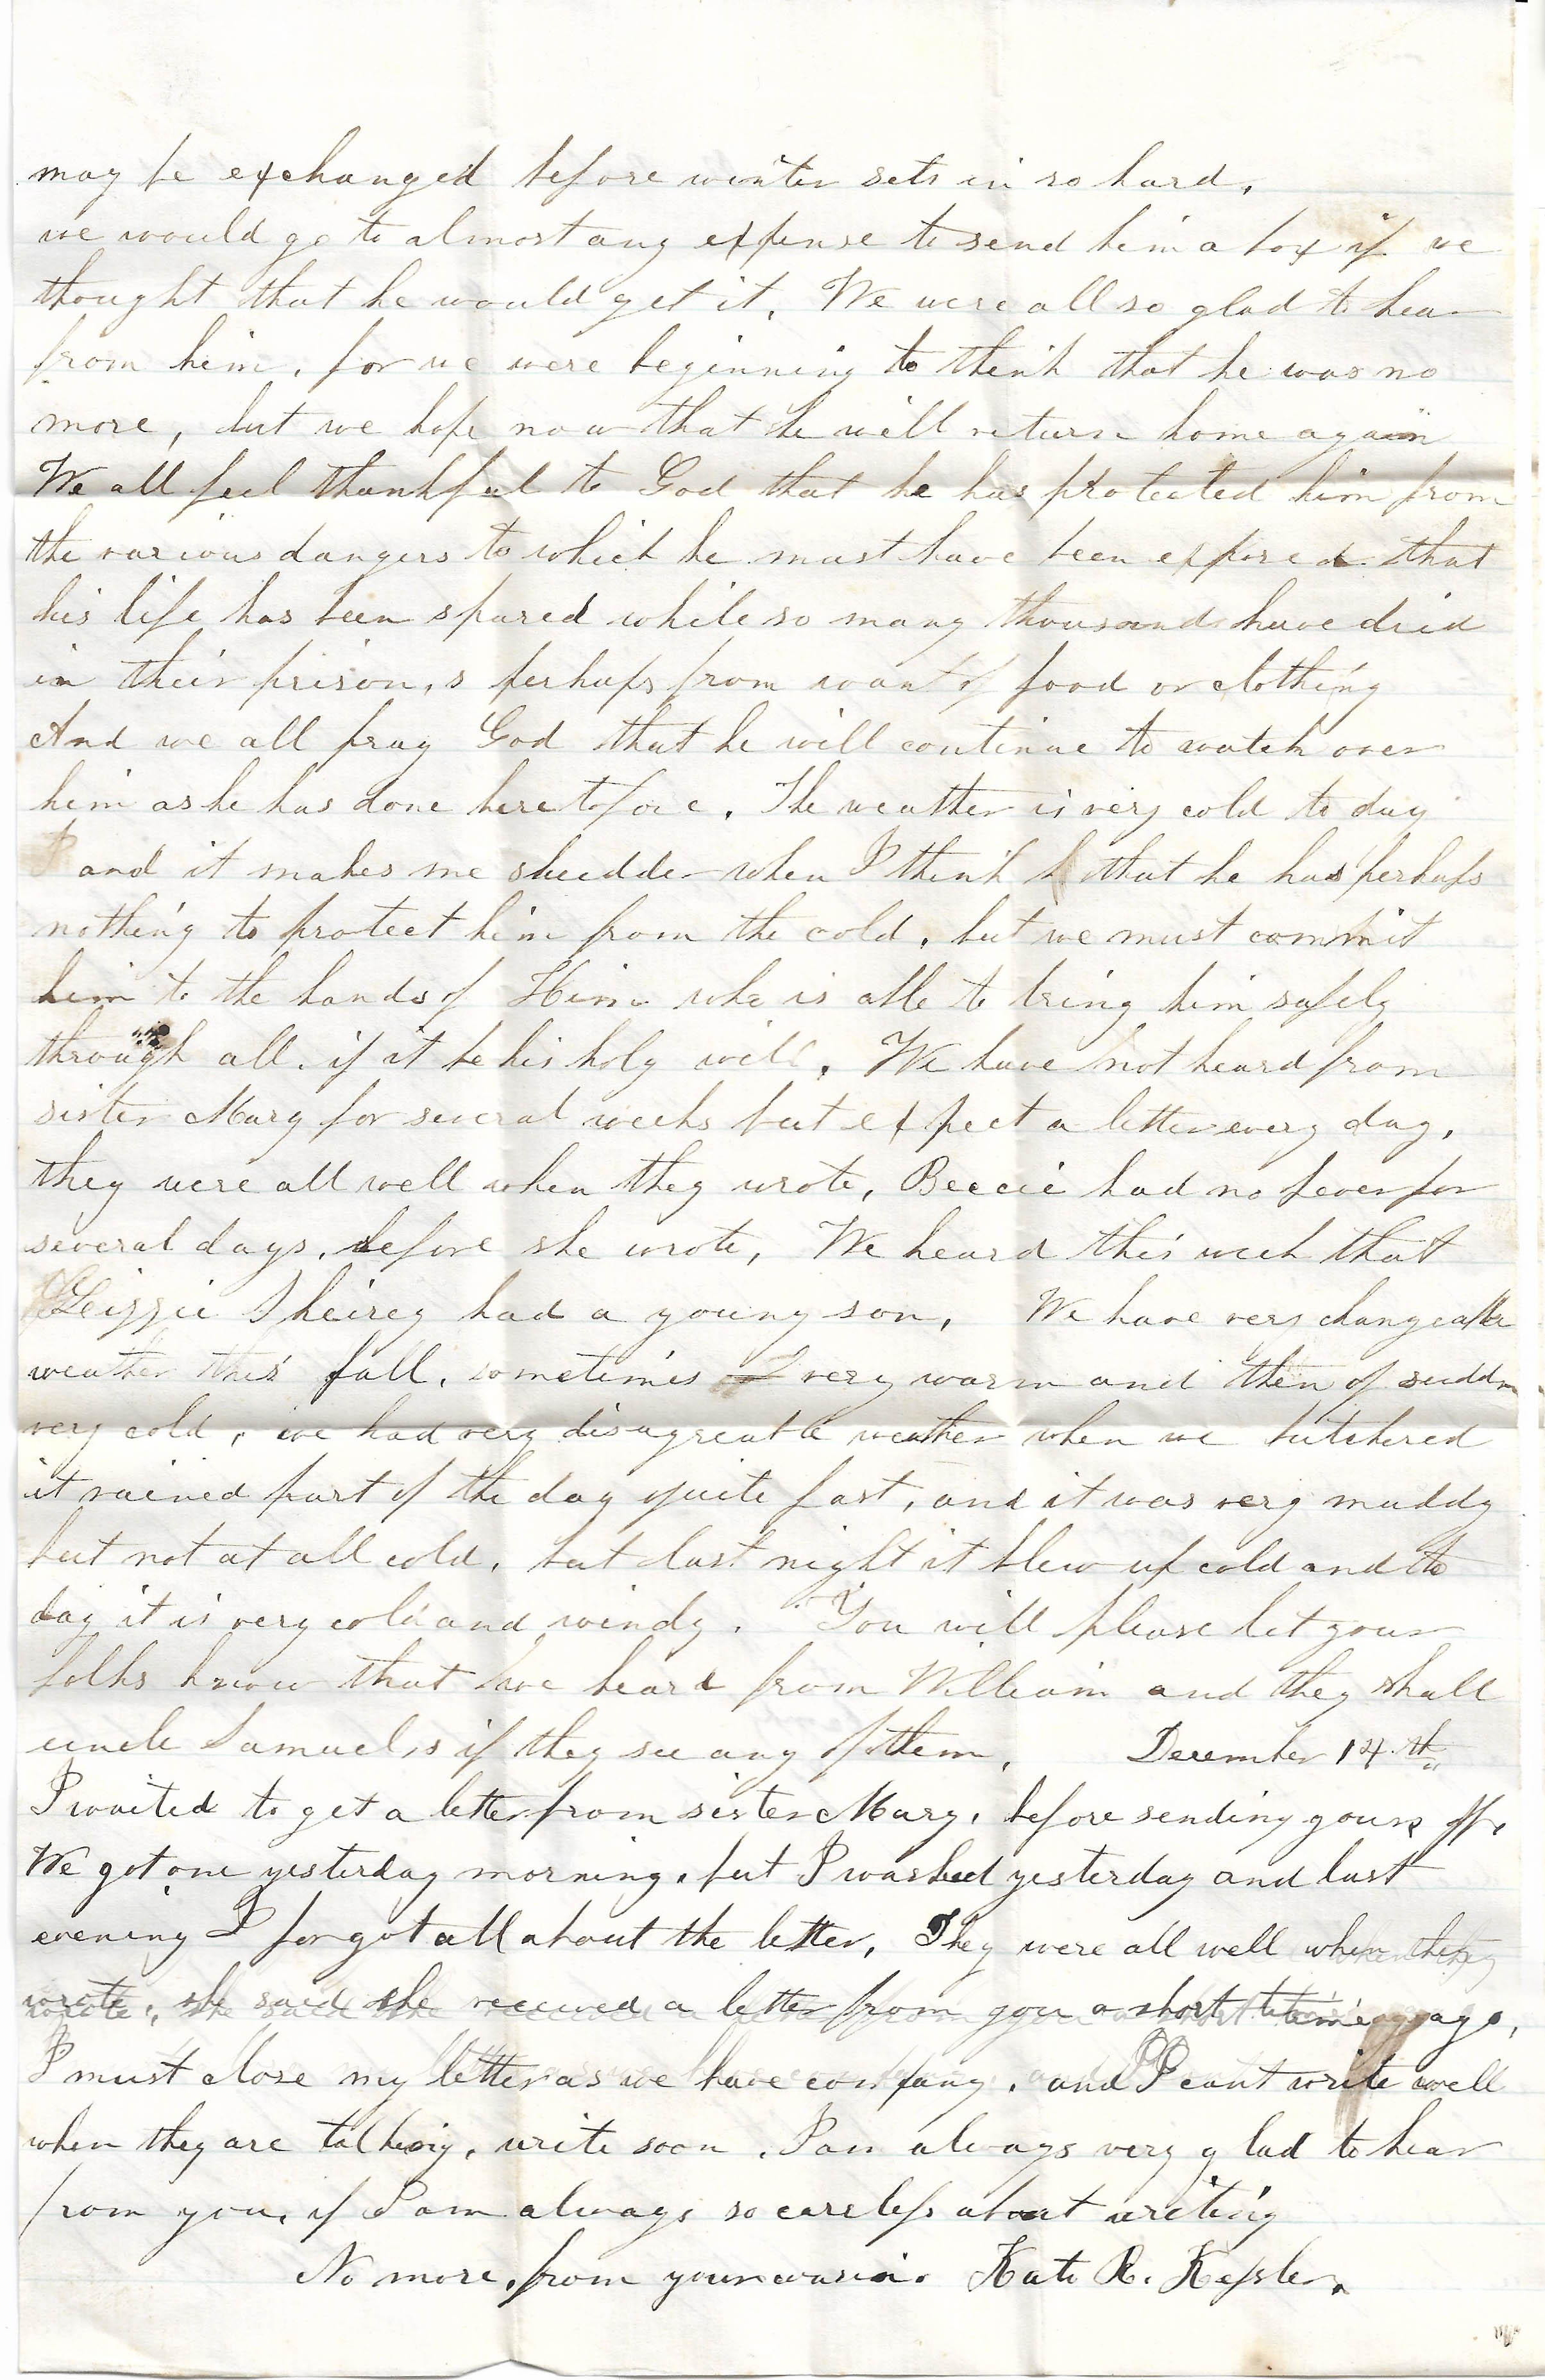 may be exchanged before winter sets in so hard,
we would go to almost any expense to send him a box if we
thought that he would get it. We were all so glad to hear
from him, for we were beginning to think that he was no
more, but we hope now that he will return home again
We all feel thankful to God that he has protected him from
the various dangers to which he must have been exposed that
his life has been spared while so many thousands have died
in their prison,s perhaps from want of food or clothing
And we all pray God that he will continue to watch over
him as he has done heretofore. The weather is very cold to day
and it makes me shudder when I think that he has perhaps
nothing to protect him from the cold, but we must commit
him to the hands of Him who is able to bring him safely
through all, if it be his holy will. We have not heard from
sister Mary for several weeks but expect a letter every day,
they were all well when they wrote, Beccie had no fever for
several days, before she wrote, We heard this week that
Leizzie Sheirey had a young son, We have very changeable
weather this fall, sometimes very warm and then of sudden
very cold, we had very disagreable weather when we butchered
it rained part of the day quite fast, and it was very muddy
but not at all cold, but last night it blew up cold and to
day it is very cold and windy. You will please let your
folks know that we heard from William and they shall
uncle Samuel,s if they see any of them, December 14.th
I waited to get a letter from sister Mary, before sending yours off,
We got one yesterday morning, but I washed yesterday and last
evening I forgot all about the letter, They were all well when they
wrote, she said she received a letter from you a short time ago,
I must close my letter as we have company, and I cant write well
when they are talking, write soon, I am always very glad to hear
from you, if I am always so careless about writing
No more, from your cousin. Kate R. Kessler.